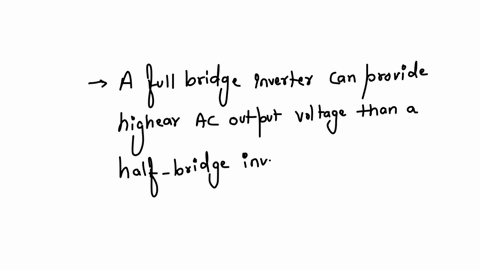 → A full bridge inverter can provide
highear AC output voltage than a
half-bridge inv.